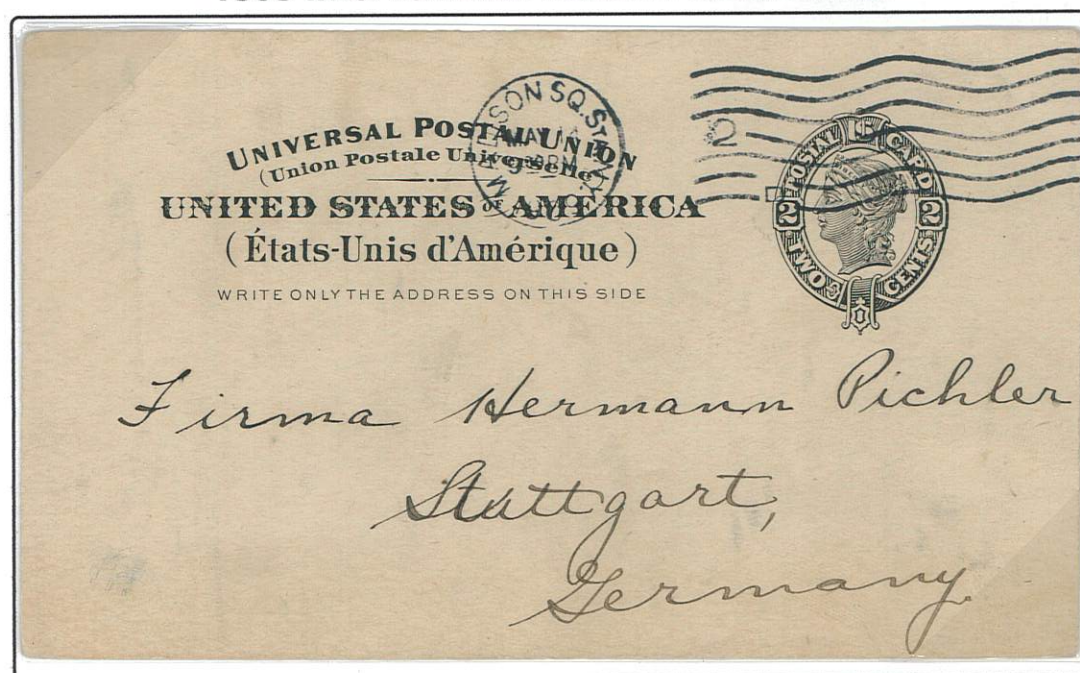 UNIVERSAL POSTAL UNION
(Union Postale Universelle)
UNITED STATES OF AMERICA
(États-Unis d'Amérique)
WRITE ONLY THE ADDRESS ON THIS SIDE
SON SQ. STA.
MAY
2
POSTAL CARD
2 2
TWO CENTS
Firma Hermann Pichler
Stuttgart,
Germany.